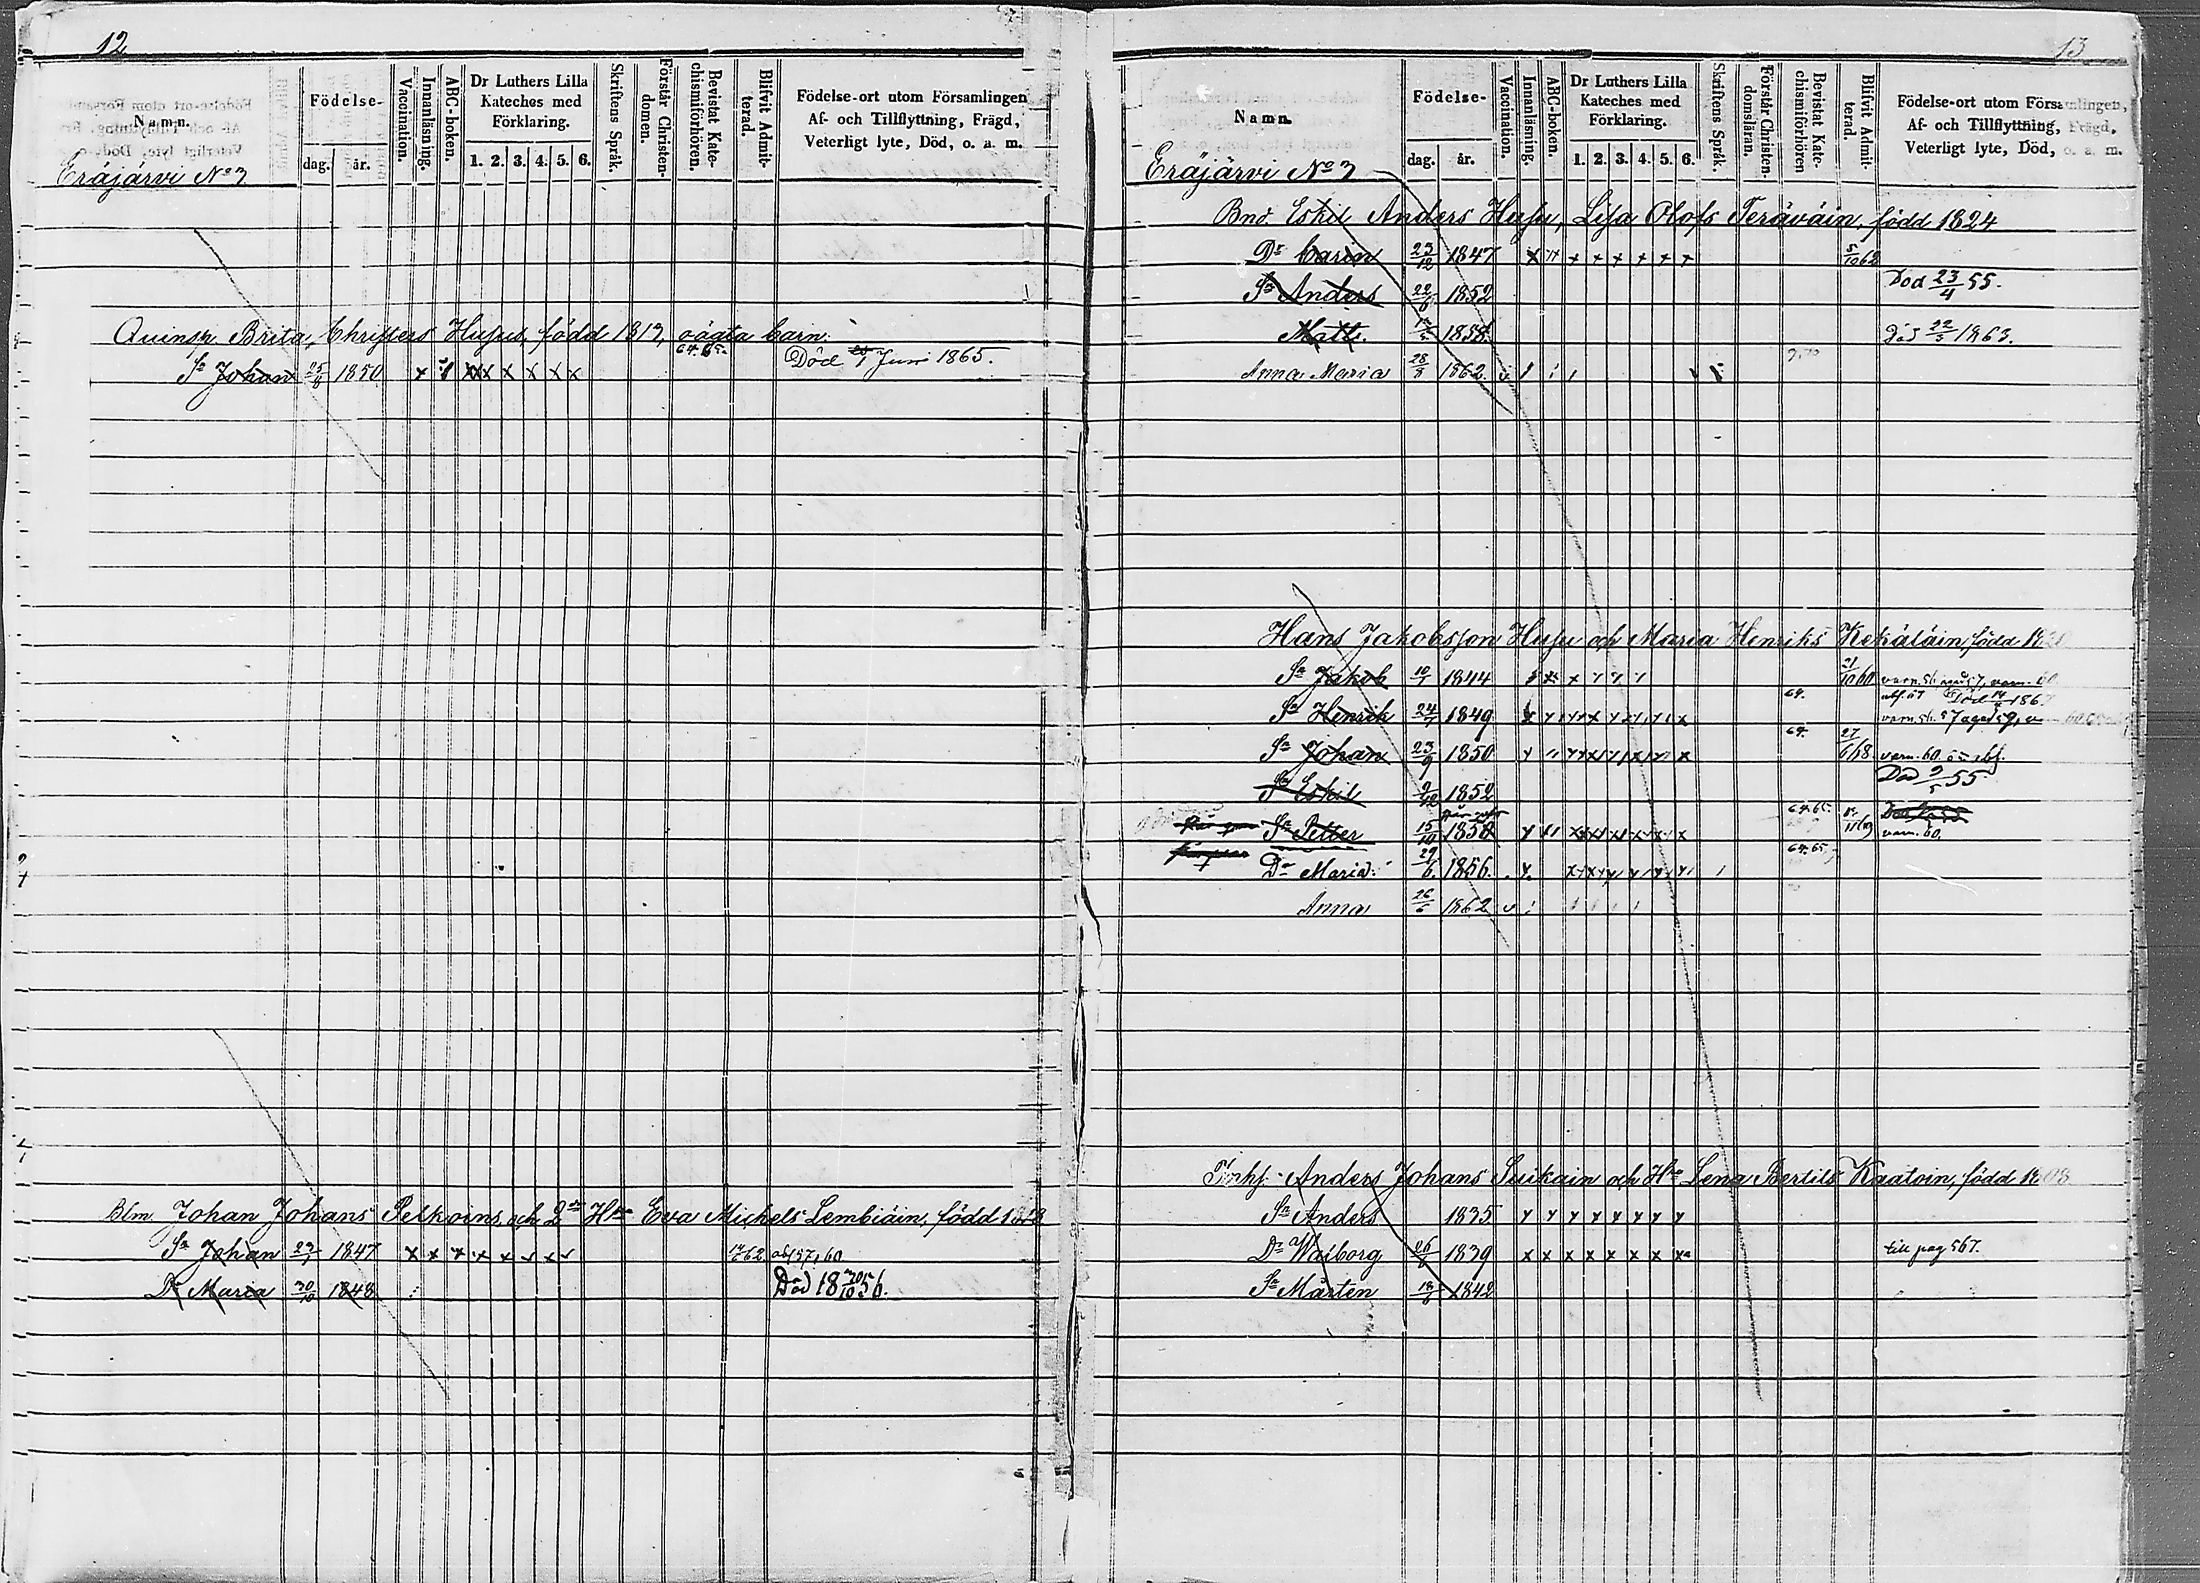 12
Namn.
Födelse-
dag. år.
Vaccination.
Innanläsning.
ABC-boken.
Dr Luthers Lilla
Kateches med
Förklaring.
1. 2. 3. 4. 5. 6.
Skriftens Språk.
Förstår Christen-
domen.
Bevistat Kate-
chismiförhören.
Blifvit Admit-
terad.
Födelse-ort utom Församlingen
Af- och Tillflyttning, Frägd,
Veterligt lyte, Död, o. a. m.
Eräjärvi No 3
Quinsp. Brita Christers Husu, född 1813, oägta barn:
Sn Johan 25/8 1850 x x x x x x x 64. 65. Död Juni 1865.
Blm Johan Johans Pelkoins och 2dra Hru Eva Michels Lembiäin, född 1818
Sn Johan 1847 x x x x x x x x 62 60
Dr Maria 30/10 1848 Död 18 30/10 56.
13
Namn.
Födelse-
dag. år.
Vaccination.
Innanläsning.
ABC-boken.
Dr Luthers Lilla
Kateches med
Förklaring.
1. 2. 3. 4. 5. 6.
Skriftens Språk.
Förstår Christen-
domsläran.
Bevistat Kate-
chismiförhören
Blifvit Admit-
terad.
Födelse-ort utom Församlingen,
Af- och Tillflyttning, Frägd,
Veterligt lyte, Död, o. a. m.
Eräjärvi No 3
Bnd. Eskil Anders Husu, Lisa Olofs Teräväin, född 1824
Dr Carin 23/12 1847 x x x x x x x 5/10 62
Sn Anders 22/6 1852 Död 23/4 55.
Matts. 1858 Död 22/5 1863.
Anna Maria 28/8 1862
Hans Jakobsson Husu och Maria Henriks Kekäläin, född
Sn Jakob 10/1 1844 21/10 60
Sn Henrik 24/7 1849 64. Död
Sn Johan 23/9 1850 64. 27/6 68. varn. 60.
Sn Eskil 9/12 1852 Död 9/5 55
Sn Petter 15/10 1858 64. 65. varn. 60.
Dr Maria 29/6 1856 64. 65.
Anna 26/6 1862
Inhs. Anders Johans Suikain och Hru Lena Bertils Kaatoin, född 1808
Sn Anders 1835
Dr Walborg 26/6 1839 x x x x x x x x till pag 567.
Sn Mårten 18/6 1842